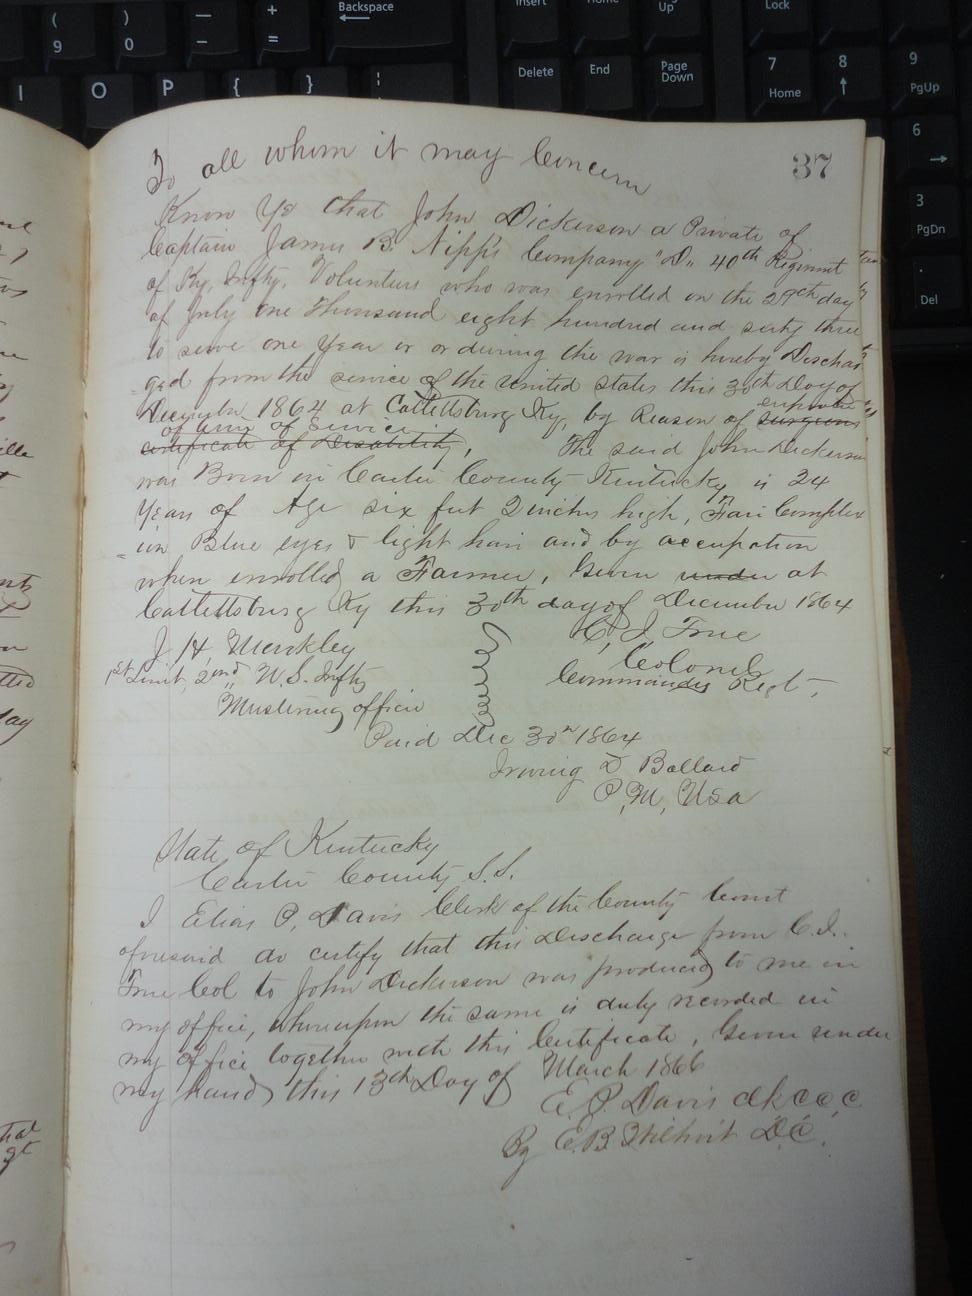 ( 9
) 0
— -
+ =
Backspace
Insert
Home
Up
Lock
I O P { } ¦
Delete End Page Down
7 Home
8
9 PgUp
6
3 PgDn
. Del
37
To all whom it may Concern
Know Ye that John Dickerson a Private of
Captain James B. Nipp's Company "D" 40th Regiment
of Ky, Infty, Volunteers who was enrolled on the 29th day
of July one Thousand eight hundred and sixty three
to serve one Year or or during the war is hereby Dischar
ged from the service of the United States this 30th Day of
December 1864 at Cattettsburg Ky, by Reason of surgeons
of Service
certificate of Disability, The said John Dickerson
was Born in Carter County Kentucky is 24
Years of Age six feet 2 inches high, Fair Complex
= ion Blue eyes & light hair and by accupation
when enrolled a Farmer, Given under at
Cattettsburg Ky this 30th day of December 1864
C, J, True
Colonel
Commandg Regt,
1st Lieut, 2nd U.S. Infty
Mustering officer
Paid Dec 30th 1864
Irwing D Ballard
P, M, Usa
State of Kentucky
Carter County S.S.
I Elias P, Davis Clerk of the County Court
aforesaid do certify that this Discharge from C.J.
True Col to John Dickerson was produced to me in
my office, whereupon the same is duly recorded in
my office together with this Certificate, Given under
my hand this 13th Day of March 1866
E. P. Davis clk c c c
By E.B. Wilhoit D.C.